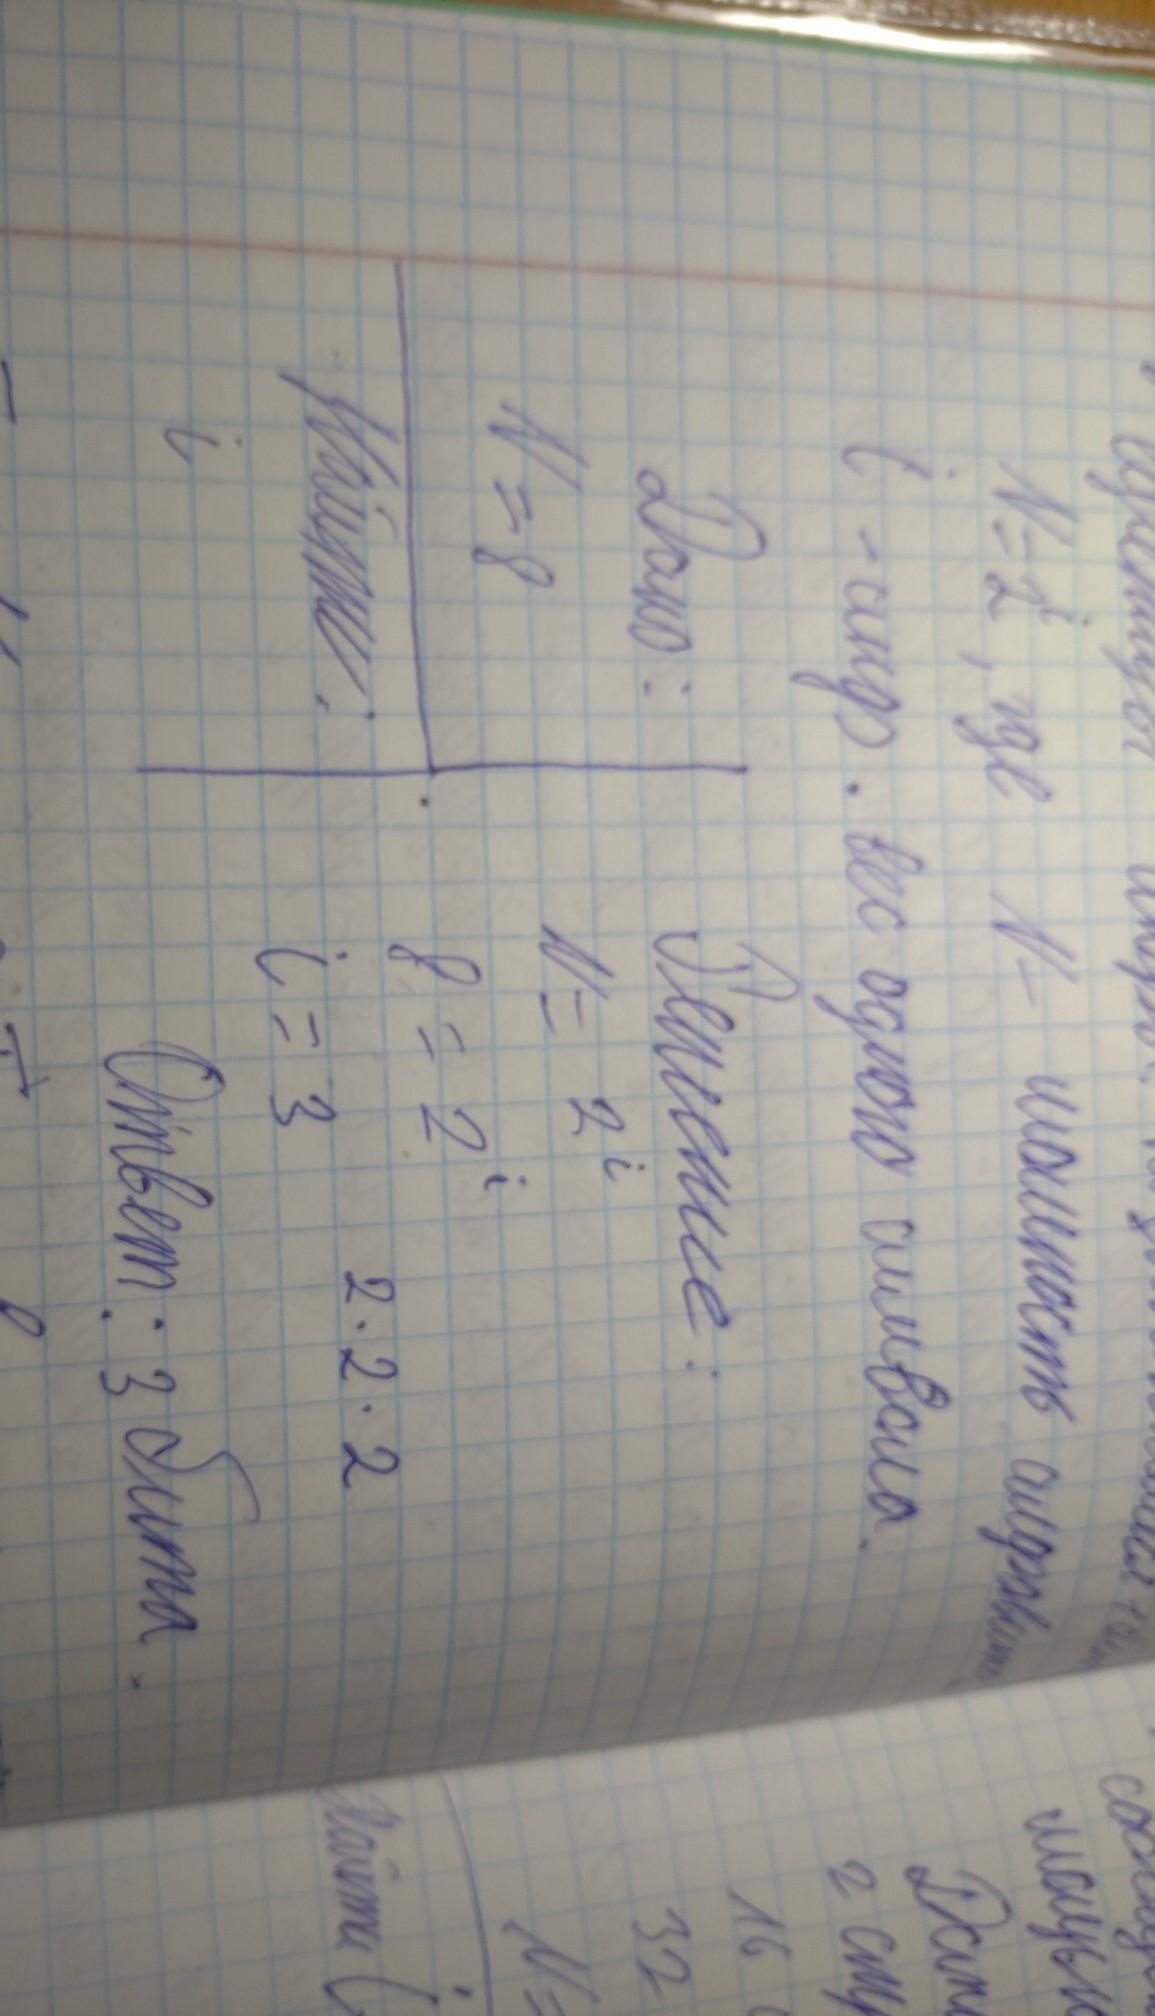 N = 2^i, где N - мощность алфавита
i - инфо. вес одного символа.
Дано:
N = 8
Найти:
i
Решение:
N = 2^i
8 = 2^i
i = 3
2·2·2
Ответ: 3 бита.
2 стр
16
32
N =
Найти